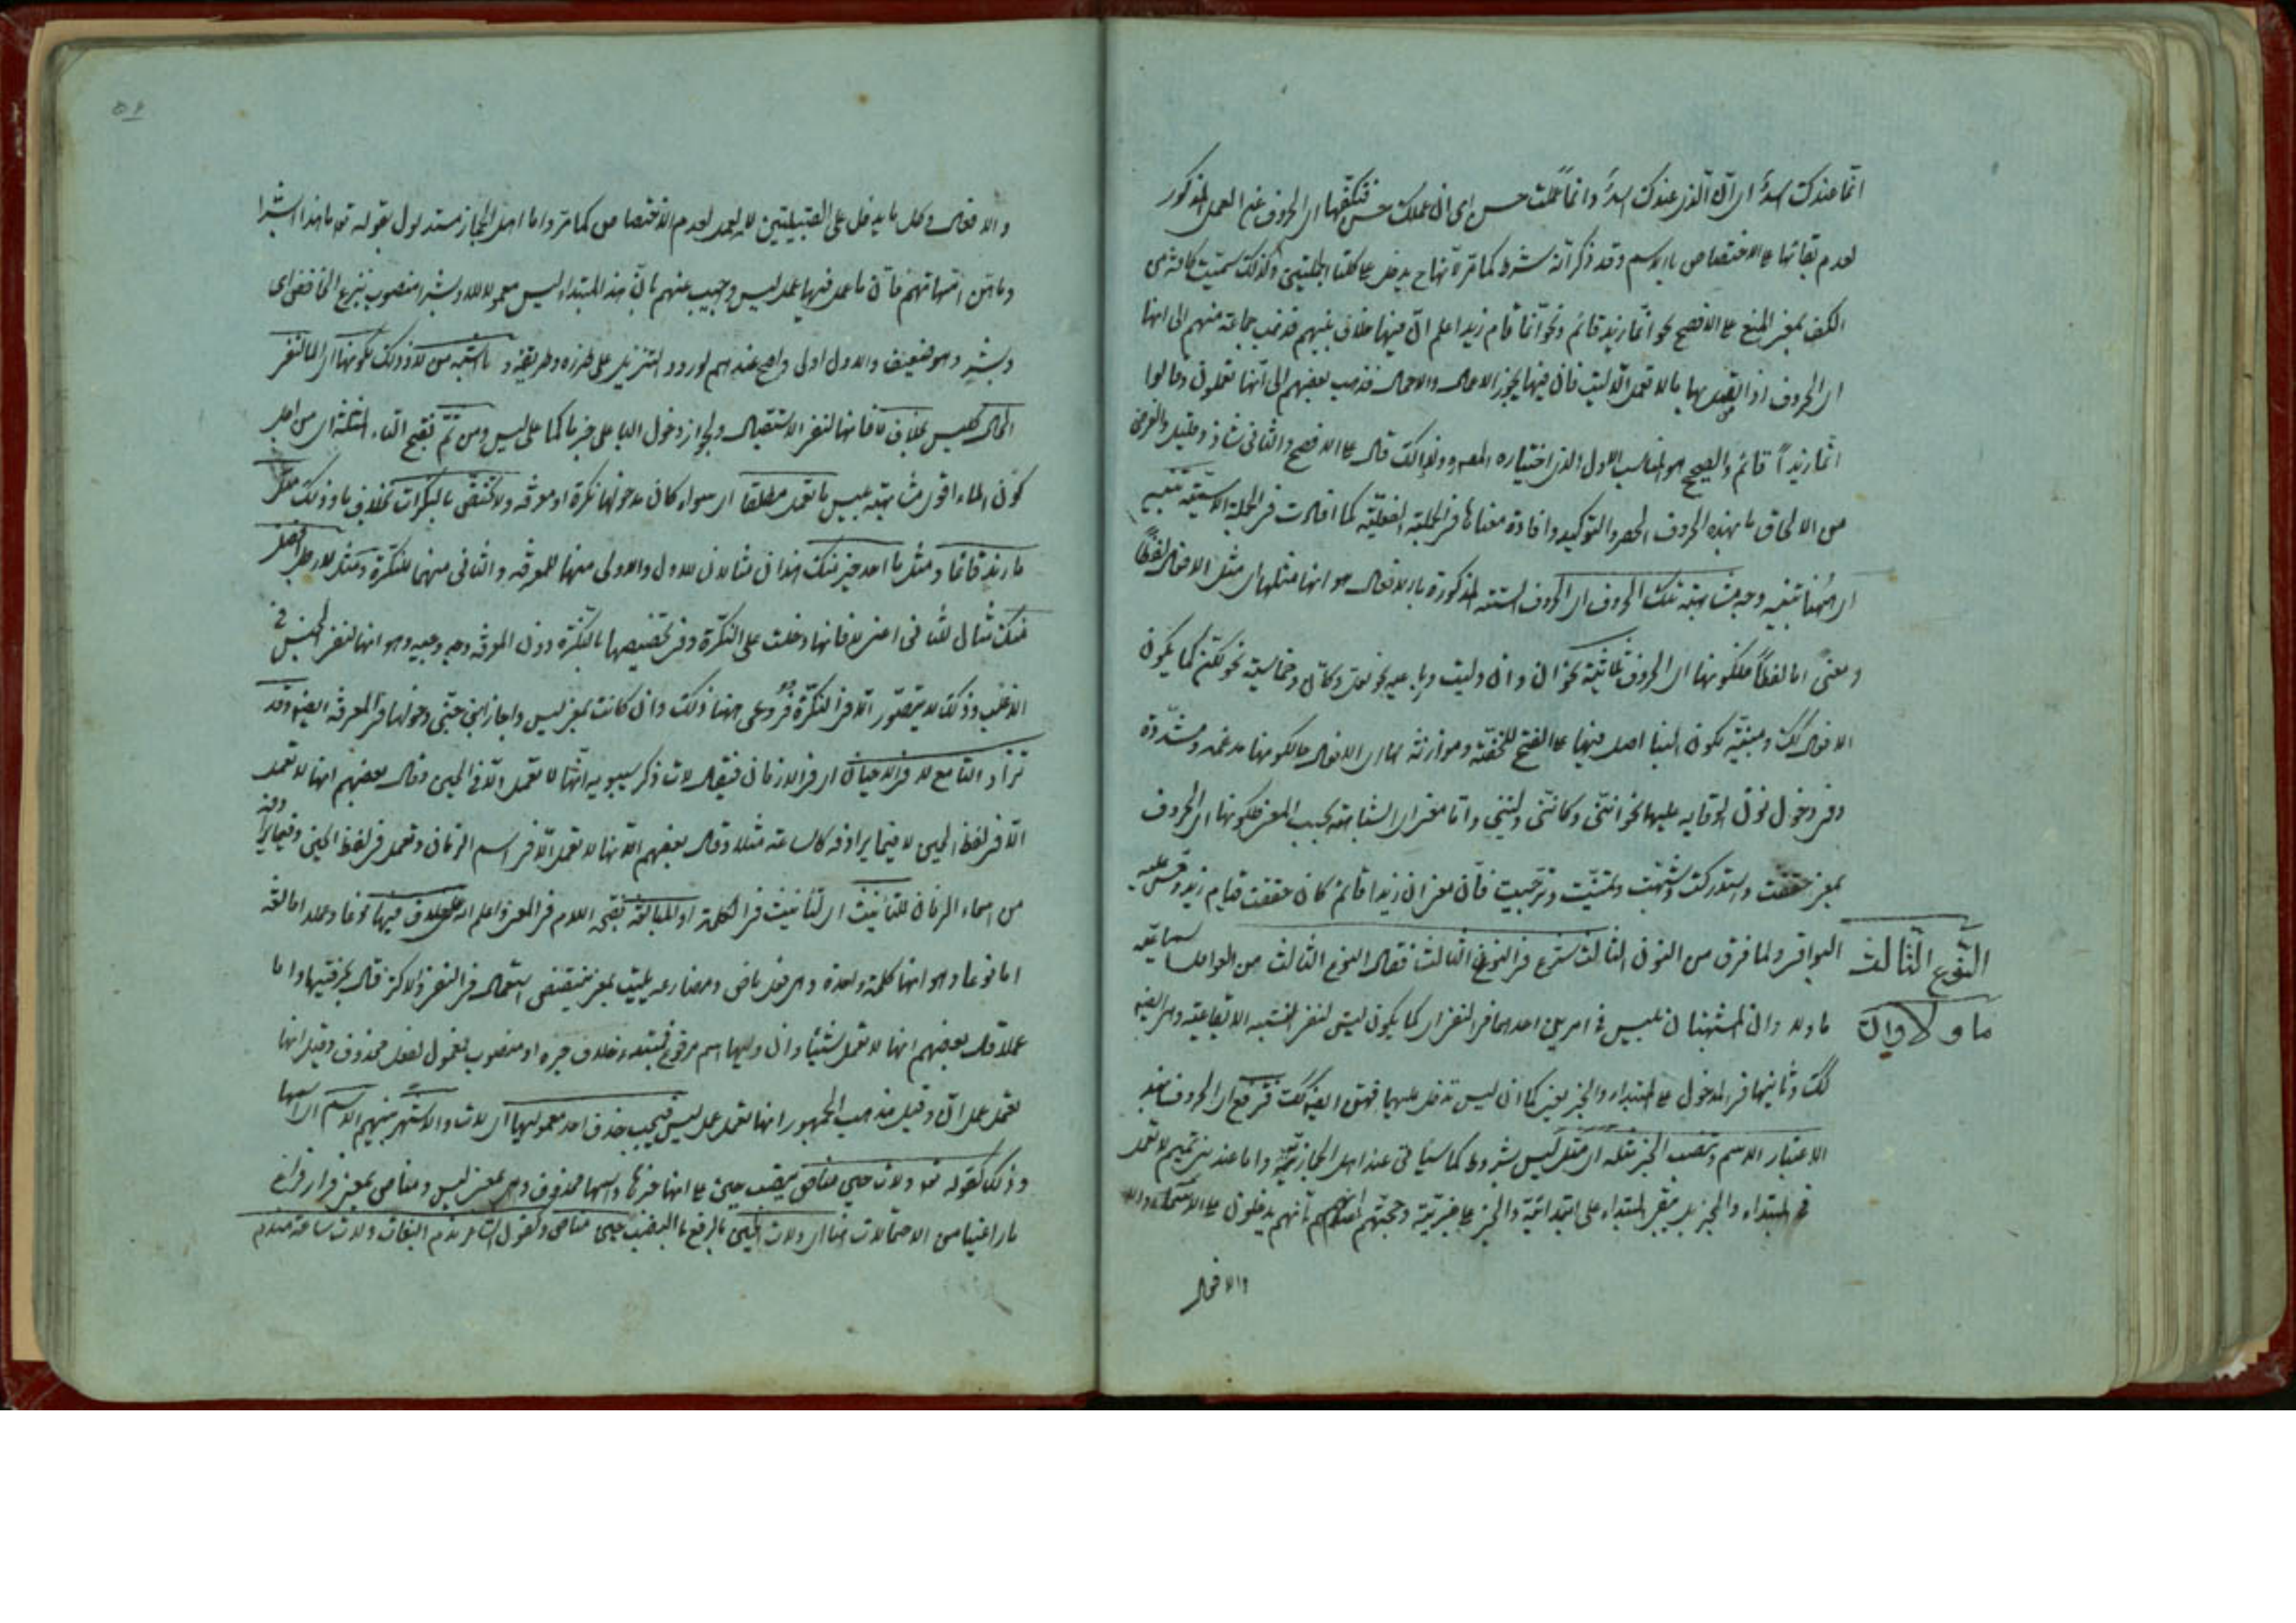 انما عندك اسد اى ان الذى عندك اسد وانما عملت حسن اى ان عملك حسن فتكفها اى الحروف عن العمل المذكور
لعدم بقائها على الاختصاص بالاسم وقد ذكر انه شرط كما مر لانها ح يدخل على كلتا الجملتين ولذلك سميت كافة من
الكف بمعنى المنع على الافصح نحو انما زيد قائم ونحو انما قام زيد اعلم ان فيها خلاف بينهم فذهب جماعة منهم الى انها
اى الحروف اذا اتصل بها ما لا تعمل الا ليت فان فيها يجوز الاعمال والاهمال فذهب بعضهم الى انها تعملون وقالوا
انما زيداً قائم والصحيح هو المناسب الاول الذى اختياره المص ولذلك قال على الافصح والثانى شاذ وقليل والغرض
من الالحاق ما بهذه الحروف الحصر والتوكيد وافادة معناها فى الجملة الفعلية كما افادت فى الجملة الاسمية تنبيه
اى ههنا تنبيه وجه مشابهة تلك الحروف اى الحروف الستة المذكورة بالافعال هو انها مثلها اى مثل الافعال لفظاً
ومعنى اما لفظاً فلكونها اى الحروف ثلاثية نحو ان وان وليت ورباعية نحو لعل وكان وخماسية نحو لكن كما يكون
الافعال كك ومبنية لكون البناء اصل فيها على الفتح للخفة وموازنة لها اى الافعال حالكونها مدغمة ومشددة
وفى دخول نون الوقاية عليها نحو اننى وكاننى وليتنى واما معنى اى المشابهة بحسب المعنى فلكونها اى الحروف
بمعنى حققت واستدركت وشبهت وتمنيت وترجيت فان معنى ان زيدا قائم كان حققت قيام زيد وقس عليه
النوع الثالث
البواقى ولما فرق من النوع الثانى شرع فى النوع الثالث فقال النوع الثالث من العوامل السماعية
ما و لا وان
ما ولا وان المشبهتان بليس فى امرين احدهما فى النفى اى كما يكون ليس لنفى النسبة الايقاعية وهى ايضا
كك وثانيها فى الدخول على المبتداء والخبر يعنى كما ان ليس تدخل عليهما فهى ايضا كك فترفع اى الحروف بهذ
الاعتبار الاسم وتنصب الخبر مثله اى مثل ليس بشروط كما سياتى عند اهل الحجاز واما عند بنى تميم لا تعمل
فى المبتداء والخبر بل يبقى المبتداء على ابتدائية والخبر على خبرية وحجتهم انهم يدخلون على الاسماء والا
والافعال
والافعال وكل ما يدخل على القبيلتين لا يعمل لعدم الاختصاص كما مر واما اهل الحجاز مستدلون بقوله تعه ما هذا بشرا
وما هن امهاتهم فان ما عمل فيها عمل ليس وجيب عنهم بان هذا المبتداء ليس معمولا له وبشرا منصوب بنزع الخافض اى
ببشر وهو ضعيف والاول اولى واصح عندهم لورود التنزيل على طرزه وطريقه و ما اشبه من لا وذلك لكونها اى ما لنفى
الحال كليس بخلاف لا فانها لنفى الاستقبال ولجواز دخول الباء على خبرها كما على ليس ومن ثم بفتح الثاء المثلثة اى من اجل
كون الماء اقوى مشابهة بليس ما تعمل مطلقا اى سواء كان مدخولها نكرة او معرفة ولا تختص بالنكرات بخلاف ما وذلك مثل
ما زيد قائما ومثل ما احد خير منك هذان مثالان للاول والاولى منهما للمعرفة والثانى منهما للنكرة ومثل لا رجل افضل
منك مثال للثانى اعنى لا فانها دخلت على النكرة وفى تخصيصها بالنكرة دون المعرفة وجه وجيه وهو انها لنفى الجنس فى
الاغلب وذلك لا يتصور الا فى النكرة فروعى ههنا ذلك وان كانت بمعنى ليس واجاز ابن جنى دخولها فى المعرفة ايضا وقد
تزاد التاء مع لا فى الاحيان اى فى الازمان فيقال لات ذكر سيبويه انها لا تعمل الا فى الحين وقال بعضهم انها لا تعمل
الا فى لفظ الحين لا فيما يرادفه كالساعة مثلا وقال بعضهم انها لا تعمل الا فى اسم الزمان وتعمل فى لفظ الحين وفيما يرادفه
من اسماء الزمان للتانيث اى لتانيث الكلمة او للمبالغة بفتح اللام فى المعنى واعلم ان اختلاف فيها نوعا وعملا اما لفظ
اما نوعا وهو انها كلمة واحدة وهى فعل ماض ومضارعه يليت بمعنى ينتقص استعمال فى النفى والاكثر قال بحرفيتها واما
عملا قال بعضهم انها لا تعمل شيئا وان وليها اسم مرفوع فمبتداء حذف خبره او منصوب فمفعول لفعل محذوف وقيل انها
تعمل عمل ان وقيل مذهب الجمهور انها تعمل عمل ليس فيجب حذف احد معموليها اى لات والاشتهر منهم الاسم اى اسمها
وذلك كقوله تعه ولات حين مناص بنصب حين على انها خبرها واسمها محذوف وهى بمعنى ليس ومناص بمعنى فرار قرائ
الاحتمالات هنا اى ولات الحين بالرفع بالنصب حين مناص وكقول الشاعر ندم البغات ولات ساعة مندم